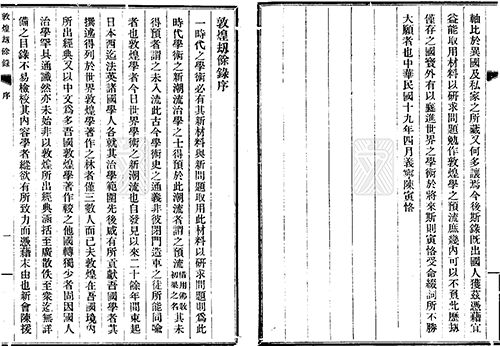 軸比於異國及私家之所藏又何多讓焉今後斯錄既出國人獲茲憑藉宜
益能取用材料以研求問題勉作敦煌學之預流庶幾內可以不負此歷刼
僅存之國寶外有以襄進世界之學術於將來斯則寅恪受命綴詞所不勝
大願者也中華民國十九年四月義寧陳寅恪
敦煌刼餘錄序
一時代之學術必有其新材料與新問題取用此材料以研求問題則為此
時代學術之新潮流治學之士得預於此潮流者謂之預流借用佛教初果之名其未
得預者謂之未入流此古今學術史之通義非彼閉門造車之徒所能同喻
者也敦煌學者今日世界學術之新潮流也自發見以來二十餘年間東起
日本西迄法英諸國學人各就其治學範圍先後咸有所貢獻吾國學者其
撰述得列於世界敦煌學著作之林者僅三數人而已夫敦煌在吾國境內
所出經典又以中文為多吾國敦煌學著作較之他國轉獨少者固因國人
治學罕具通識然亦未始非以敦煌所出經典涵括至廣散佚至眾迄無詳
備之目錄不易檢校其內容學者縱欲有所致力而憑藉末由也新會陳援
敦煌刼餘錄 序 一